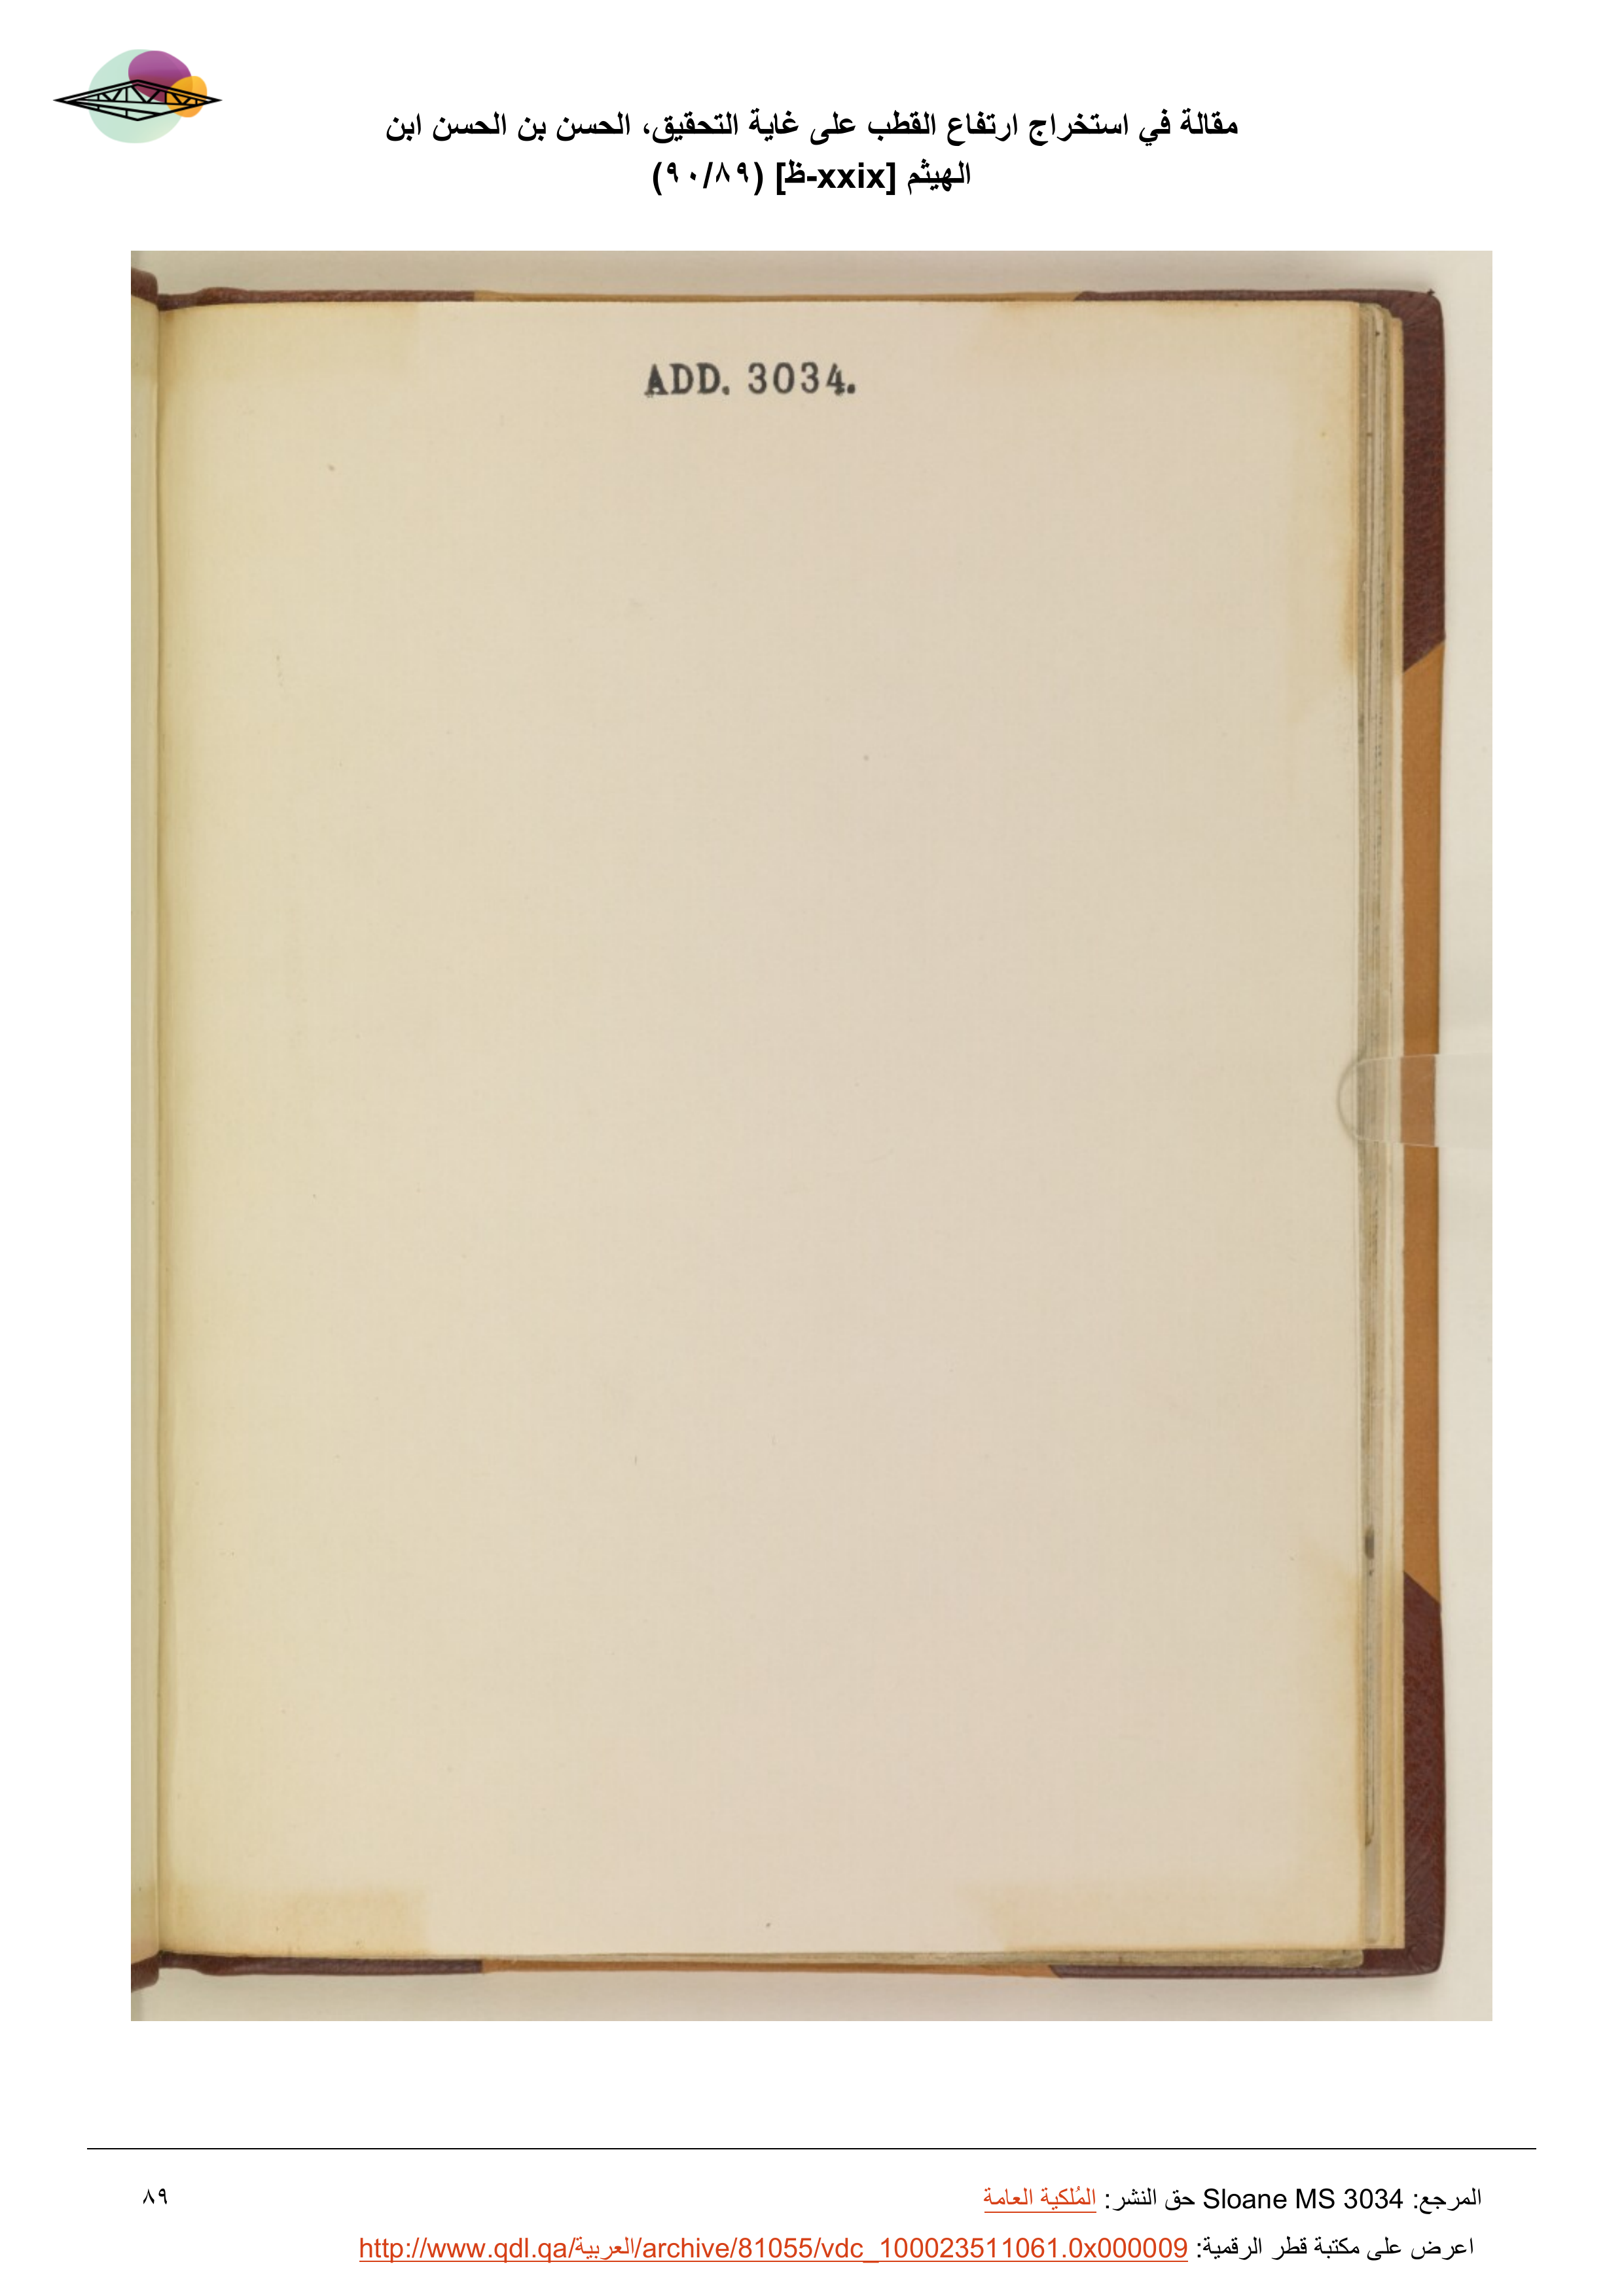 مقالة في استخراج ارتفاع القطب على غاية التحقيق، الحسن بن الحسن ابن
الهيثم [xxix-ظ] (٩٠/٨٩)
ADD. 3034.
المرجع: Sloane MS 3034 حق النشر: المُلكية العامة
٨٩
اعرض على مكتبة قطر الرقمية: http://www.qdl.qa/العربية/archive/81055/vdc_100023511061.0x000009